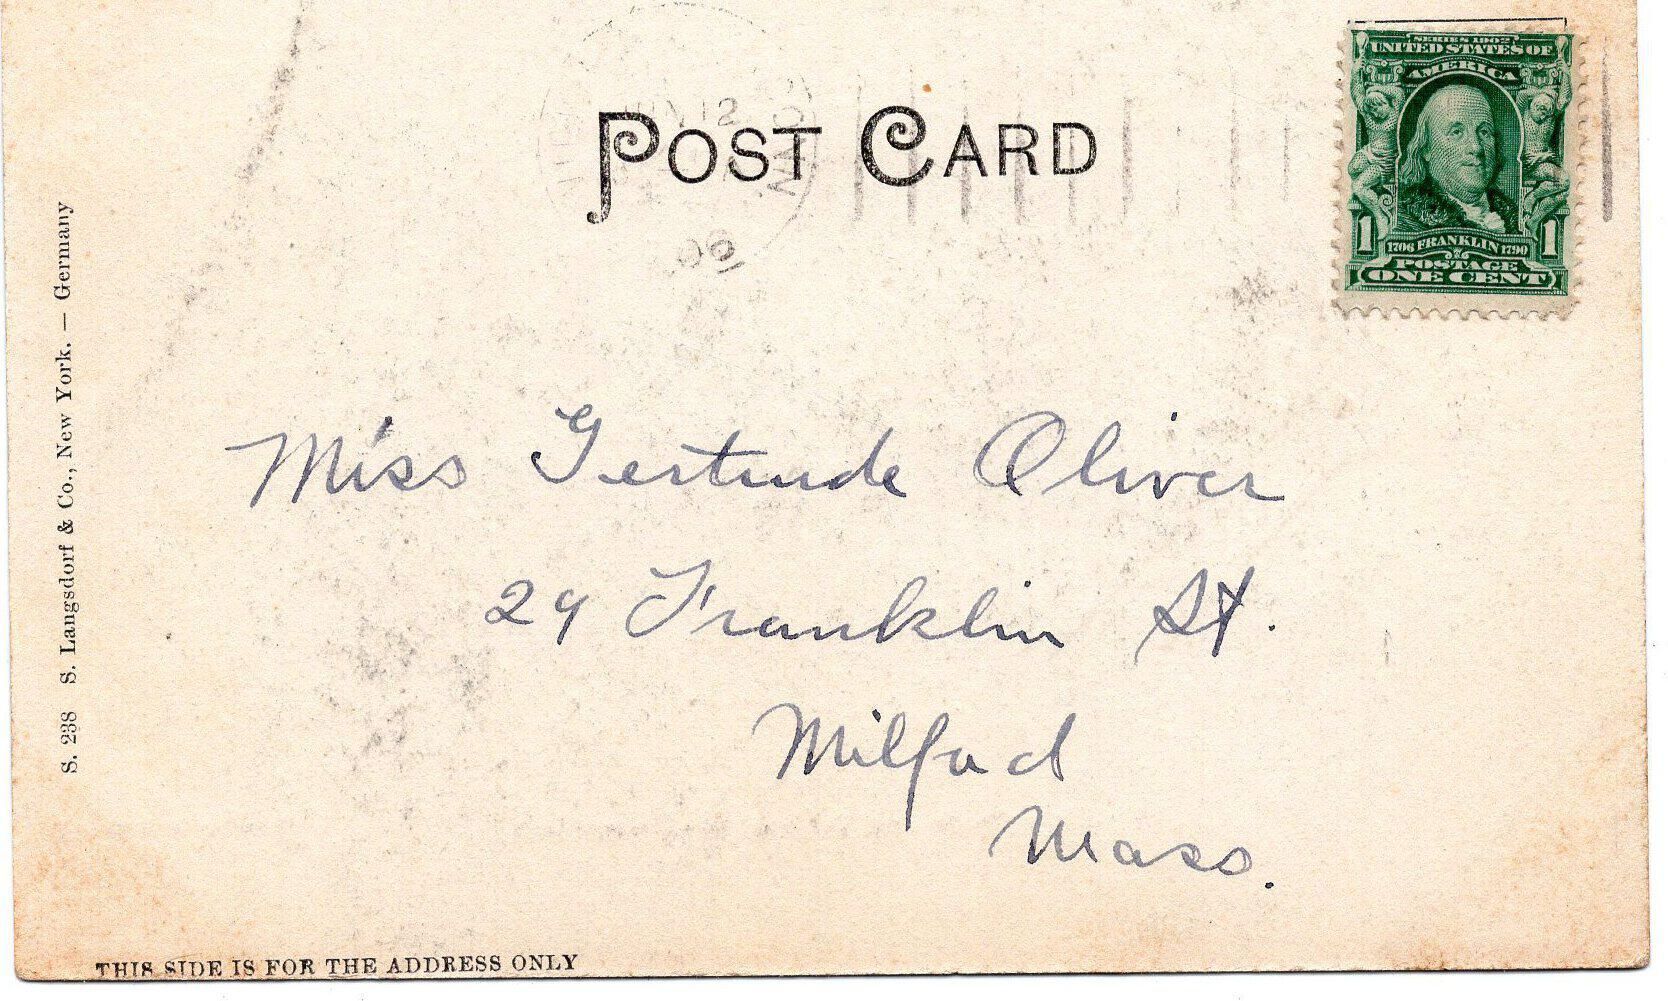 SERIES 1902
UNITED STATES OF
AMERICA
1 1706 FRANKLIN 1790 1
POSTAGE
ONE CENT
12
POST CARD
Miss Gertrude Oliver
29 Franklin St.
Milford
Mass.
S. 238 S. Langsdorf & Co., New York. — Germany
THIS SIDE IS FOR THE ADDRESS ONLY